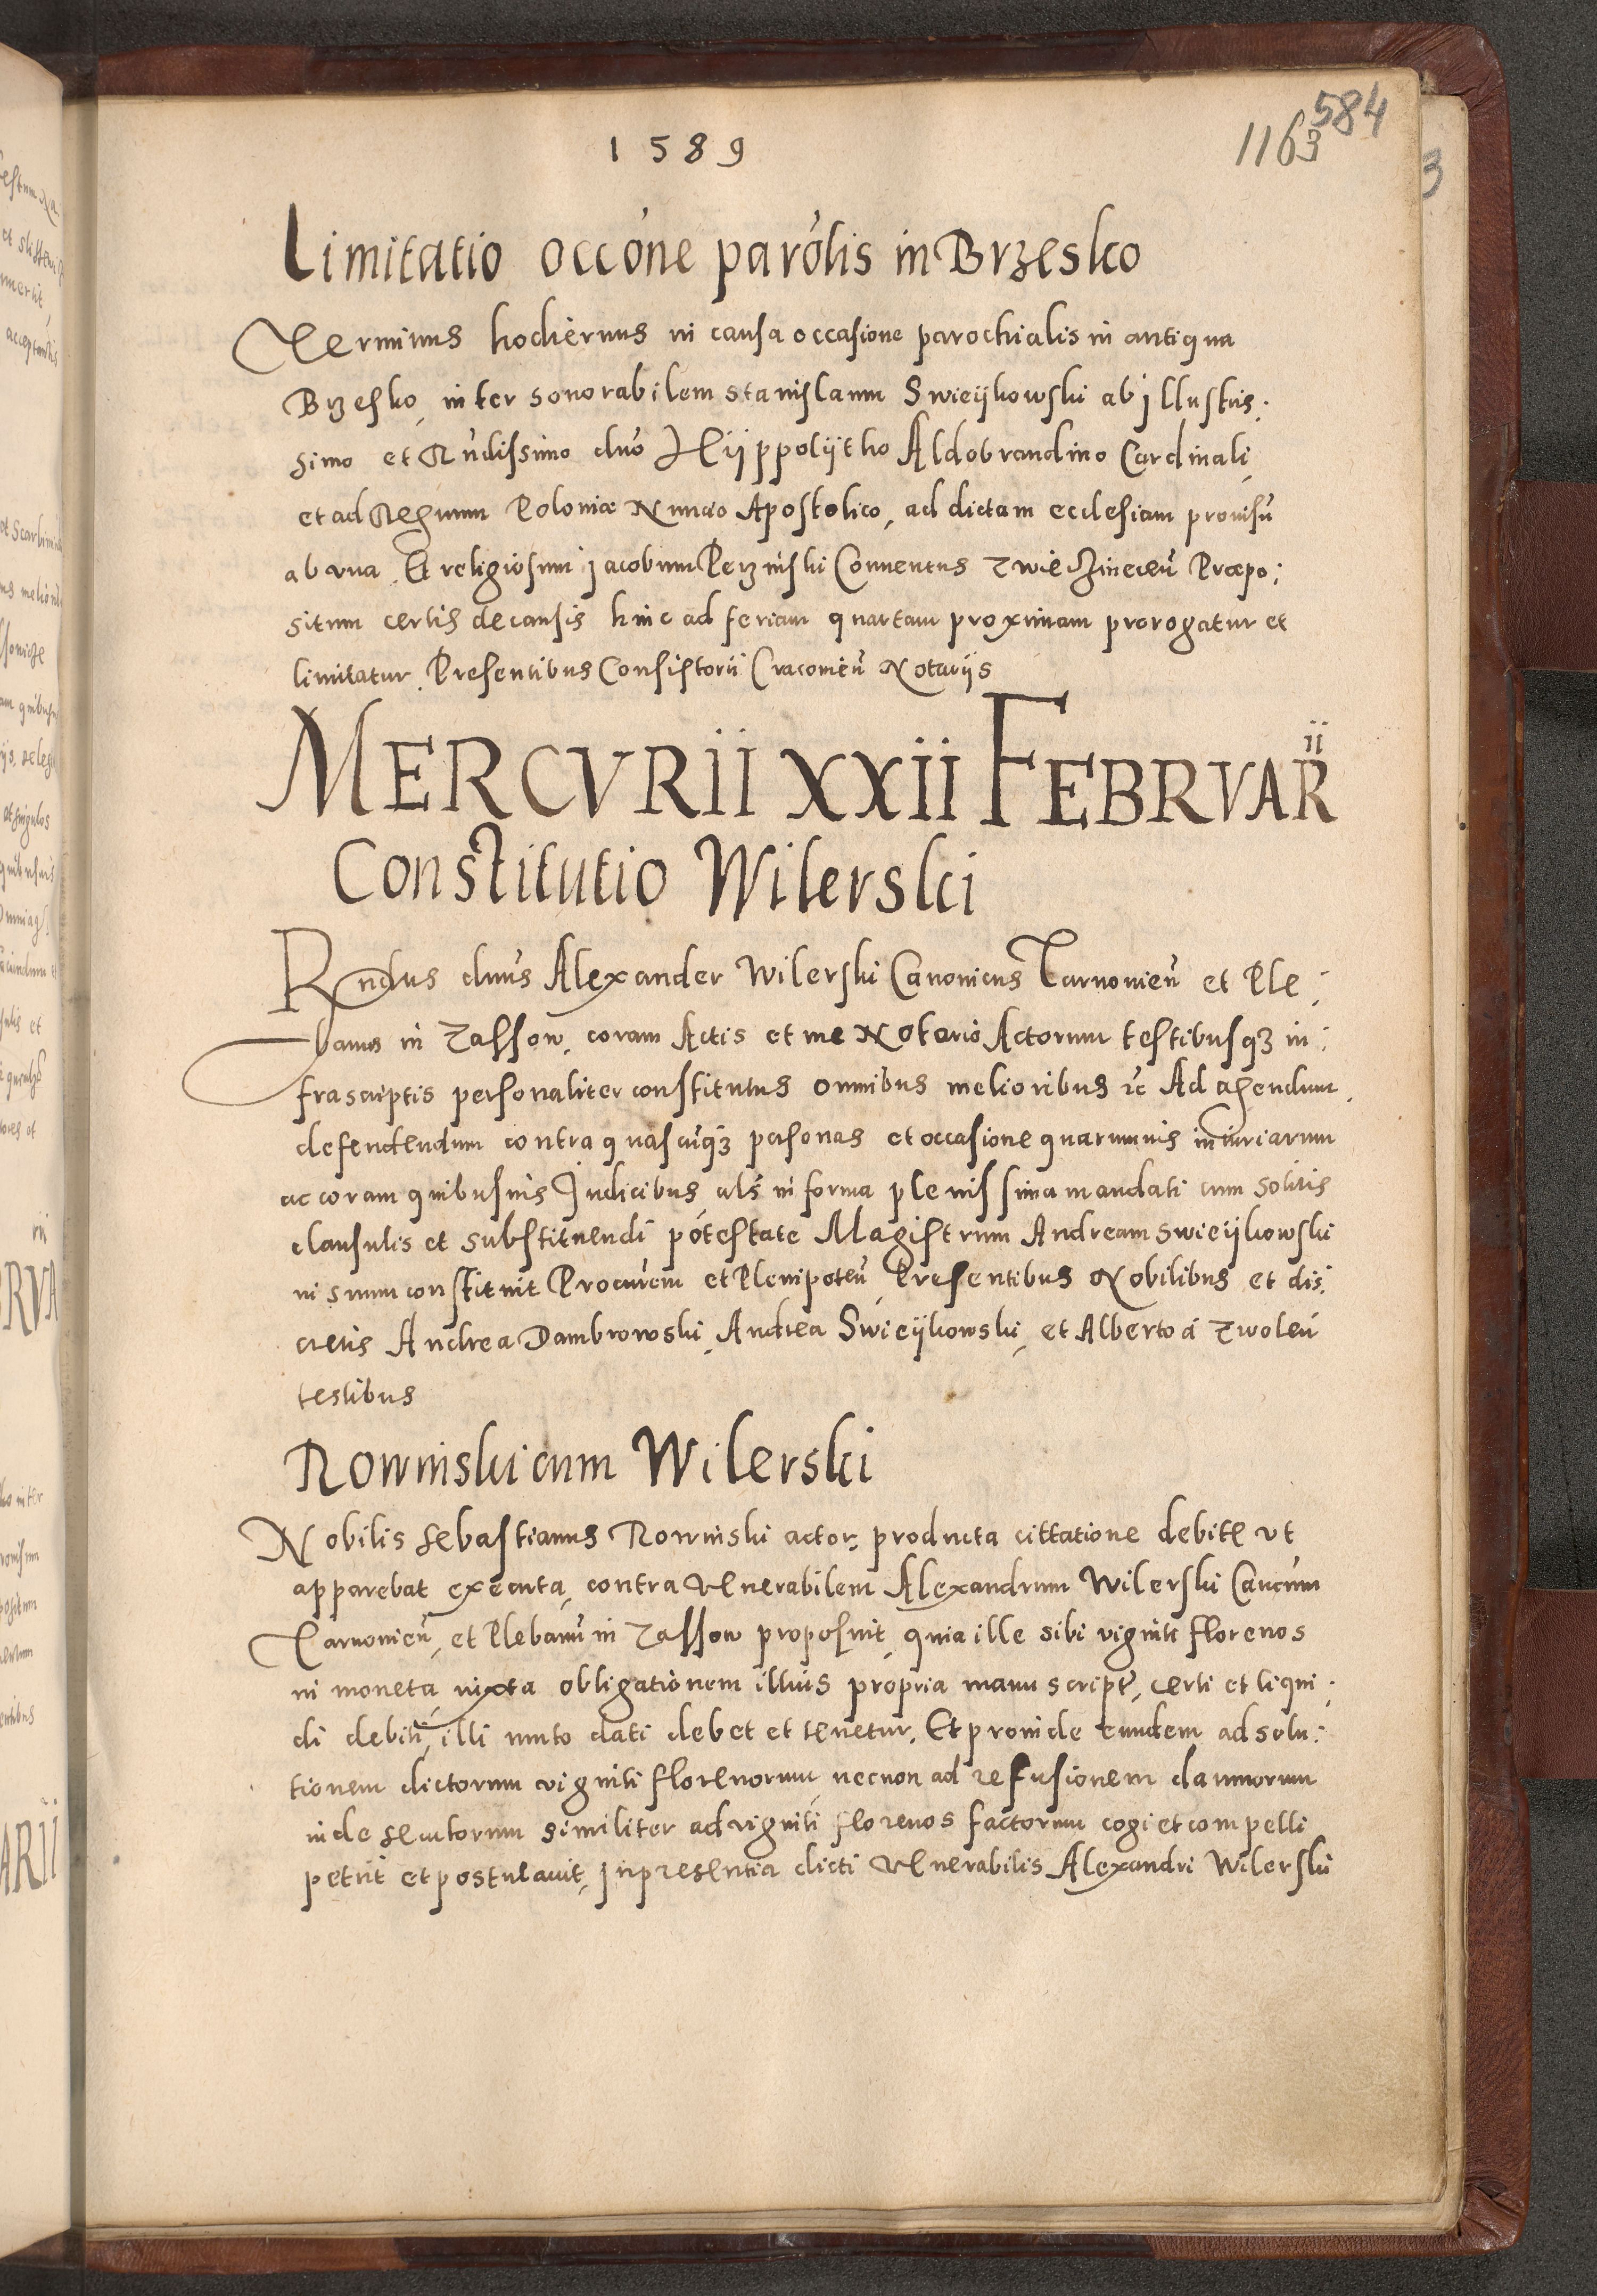 1589
584
1163
Limitatio occóne parólis in Brzesko
Terminus hodiernus in causa occasione parochialis in antiqua
Brzesko, inter honorabilem Stanislaum Swieykowski ab Jllustris:
simo et Rndissimo dno Hyppolytho Aldobrandino Cardinali
et ad Regnum Poloniæ Nuncio Apostolico, ad dictam ecclesiam provisum
ab vna, Et religiosum Jacobum Perzinski Conventus Zwierzinecen Præpo:
situm certis de causis hinc ad feriam quartam proximam prorogatur et
limitatur. Presentibus Consistorii Cracovien Notariis
MERCVRII XXII FEBRVARII
Constitutio Wilerski
Rndus dnus Alexander Wilerski Canonicus Tarnovien et Ple:
banus in Zassow, coram Actis et me Notario Actorum testibusqz in:
frascriptis personaliter constitutus omnibus melioribus rc Ad agendum
defendendum contra quascuqz personas et occasione quarumuis iniuriarum
ac coram quibusuis Judicibus als in forma plenissima mandati cum solitis
clausulis et substituendi potestate Magistrum Andream Swieykowski
in suum constituit Procurem et Plenipoten, Presentibus Nobilibus et dis:
cretis Andrea Dambrowski, Andrea Swieykowski, et Alberto á Zwolen
testibus
Rowinski cum Wilerski
Nobilis Sebastianus Rowinski actor, producta cittatione debite vt
apparebat executa, contra Venerabilem Alexandrum Wilerski Cancum
Tarnovien, et Plebanu in Zassow proposuit, quia ille sibi viginti florenos
in moneta iuxta obligationem illius propria manu script, certi et liqui:
di debiti, illi muto dati debet et tenetur. Et proinde eundem ad solu:
tionem dictorum viginti florenorum, necnon ad refusionem damnorum
inde secutorum similiter ad viginti florenos factorum cogi et compelli
petiit et postulavit, Jn presentia dicti Venerabilis Alexandri Wilerski